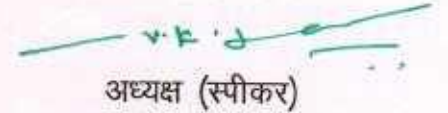 अध्यक्ष (स्पीकर)